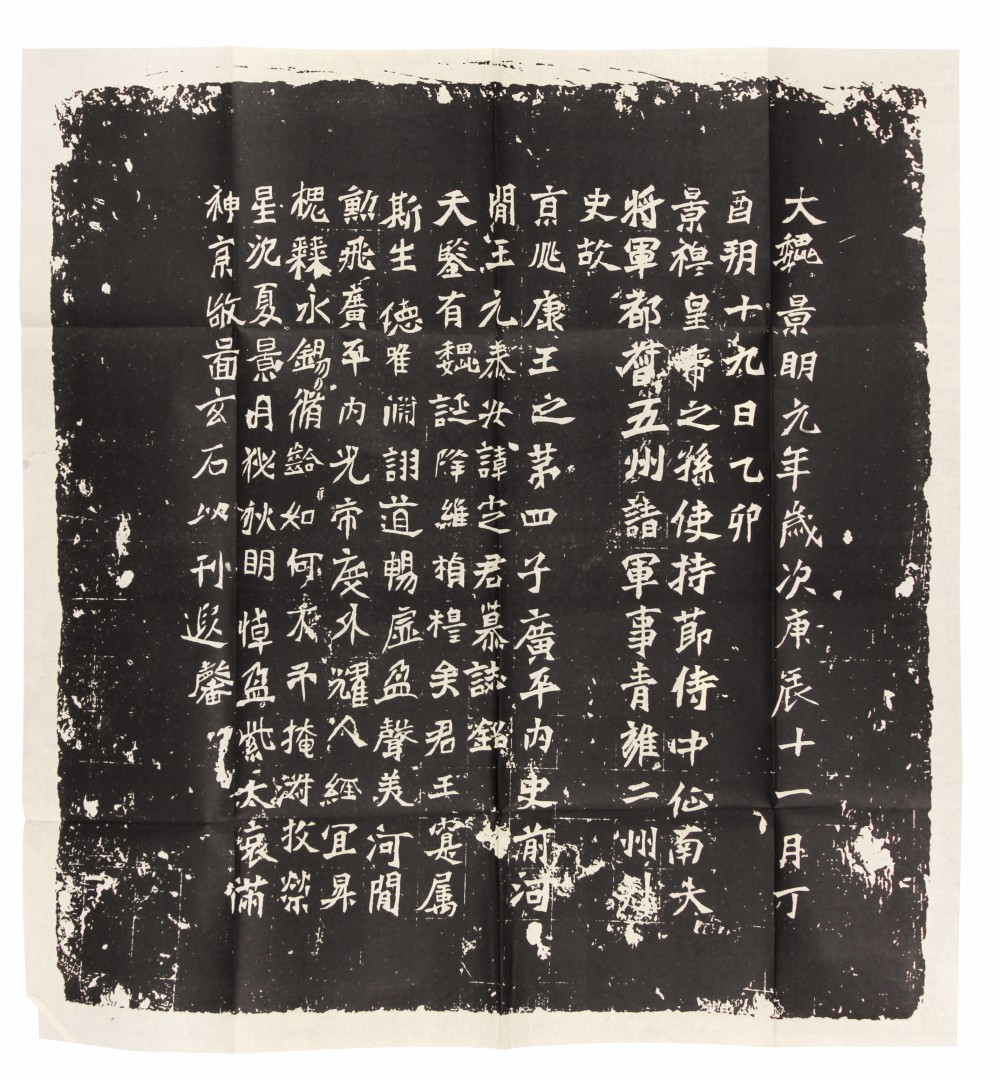 大魏景明元年歲次庚辰十一月丁
酉朔十九日乙卯
景穆皇帝之孫使持節侍中征南大
將軍都督五州諸軍事青雍二州刾
史故
京兆康王之第四子廣平內史前河
間王元泰安諱定君墓誌銘
天鑒有魏誕降維楨穆矣君王寔屬
斯生德唯淵詡道暢虛盈聲美河間
勳飛廣平內光帝度外耀人經宜昇
槐棘永錫脩齡如何弔掩投榮
星沉夏景月秋明悼盈紫太哀滿
神京敬圖玄石以刊遐馨